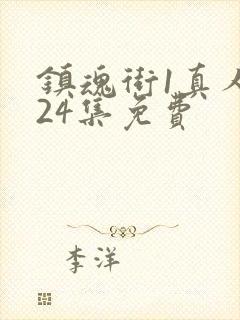 鎮魂街1真人
24集免費
李洋